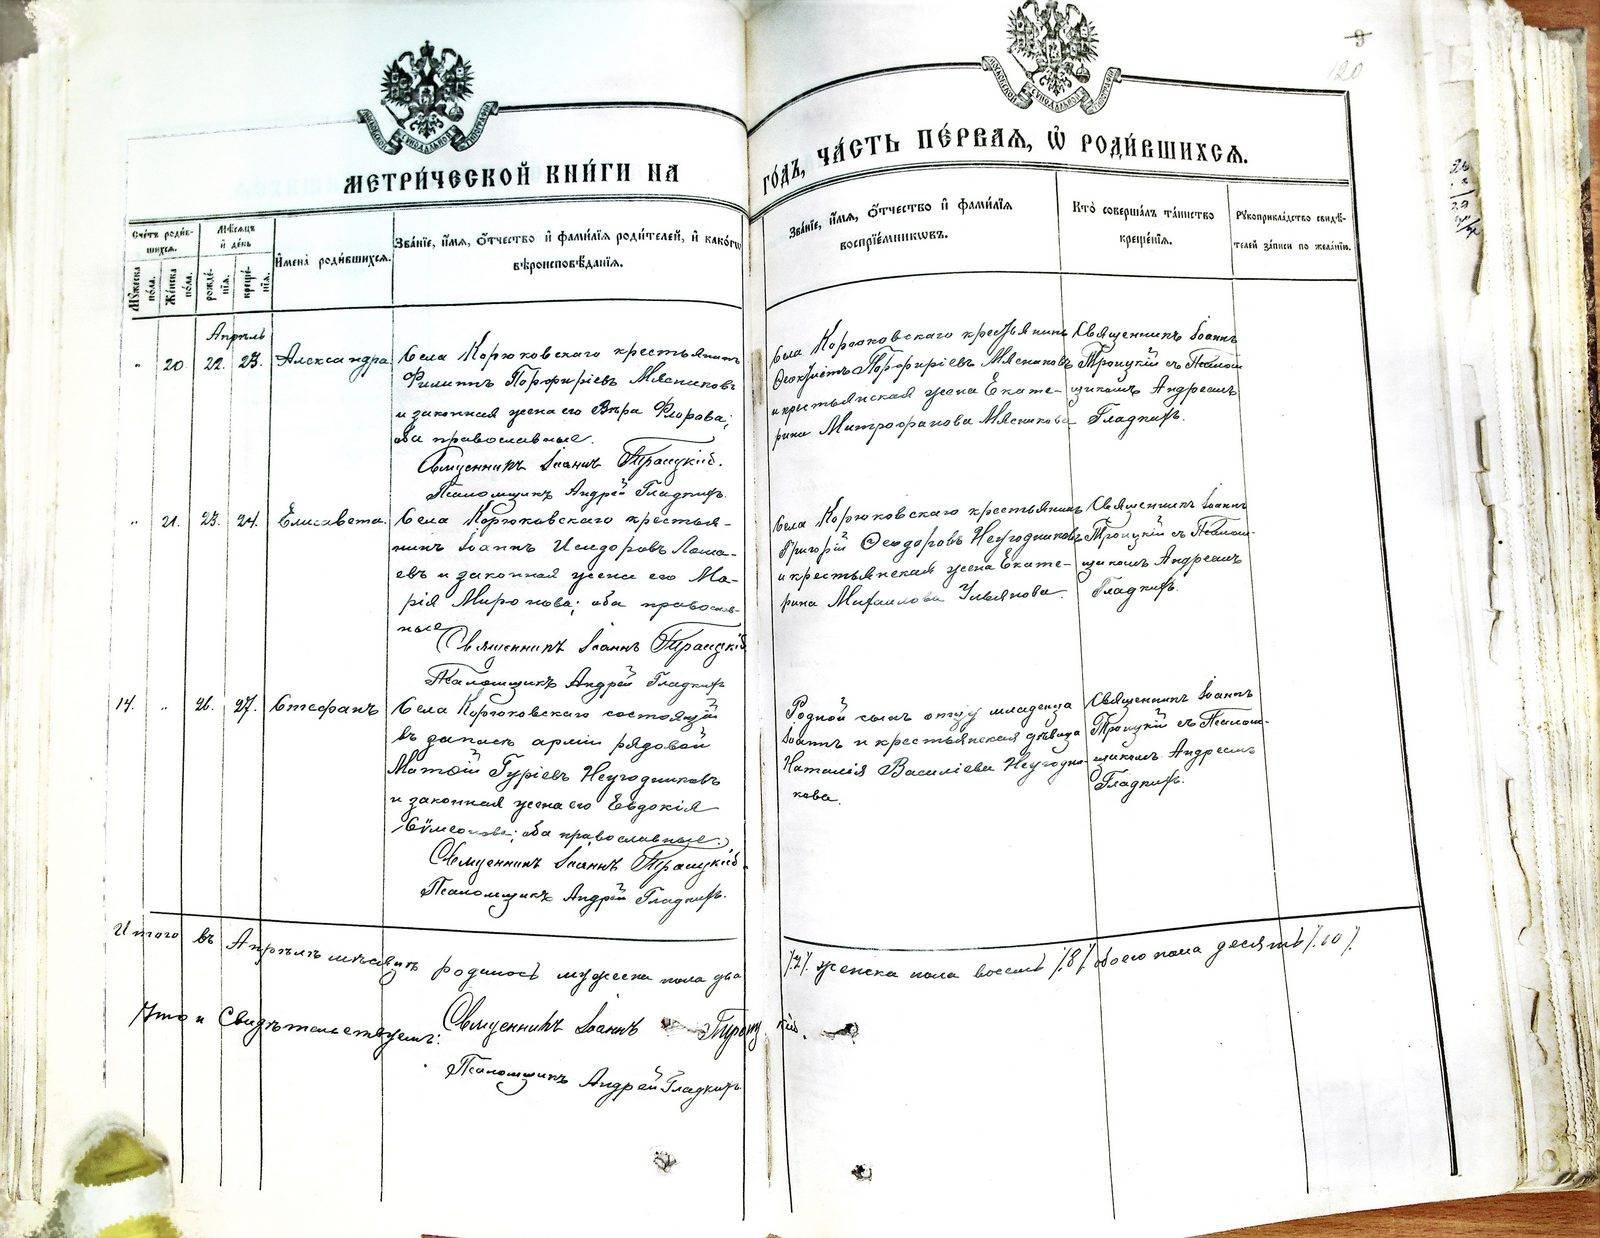 120
МОСКОВСКОЙ СУНОДАЛЬНОЙ ТИПОГРАФІИ
МОСКОВСКОЙ СУНОДАЛЬНОЙ ТИПОГРАФІИ
МЕТРИ́ЧЕСКОЙ КНИ́ГИ НА
ГО́ДЪ, ЧА́СТЬ ПЕ́РВАЯ, Ѡ҆ РОДИ́ВШИХСЯ.
Сче́тъ роди́в-
шихся.
Мꙋ́жеска по́ла.
Же́нска по́ла.
Мѣ́сяцъ и҆ де́нь
рожде́-
нїя.
креще́-
нїя.
И҆мена̀ роди́вшихся.
Зва́нїе, и҆́мя, ѻ҆́тчество и҆ фами́лїя роди́телей, и҆ како́гѡ
вѣроисповѣ́данїя.
Зва́нїе, и҆́мя, ѻ҆́тчество и҆ фами́лїя
воспрїе́мниковъ.
Кто̀ соверша́лъ та́инство
креще́нїя.
Рꙋкоприкла́дство свидѣ́-
телей за́писи по жела́нїю.
Апрѣль
" 20 22. 23. Александра
Села Корюковскаго крестьянинъ
Филиппъ Порфиріевъ Мясниковъ
и законная жена его Вѣра Флорова;
оба православные.
Священникъ Іоаннъ Троицкій.
Псаломщикъ Андрей Гладкихъ.
Села Корюковскаго крестьянинъ
Ѳеоктистъ Порфиріевъ Мясниковъ
и крестьянская жена Екате-
рина Митрофанова Мясникова
Священникъ Іоаннъ
Троицкій съ Псалом-
щикомъ Андреемъ
Гладкихъ.
" 21. 23. 24. Елисавета.
Села Корюковскаго крестья-
нинъ Іоаннъ Исидоровъ
и законная жена его Ма-
рія Миронова; оба православ-
ные
Священникъ Іоаннъ Троицкій
Псаломщикъ Андрей Гладкихъ
Села Корюковскаго крестьянинъ
Григорій Ѳеодоровъ Неугодниковъ
и крестьянская жена Екате-
рина Михаилова Ульянова.
Священникъ Іоаннъ
Троицкій съ Псалом-
щикомъ Андреемъ
Гладкихъ.
14. " 26. 27. Стефанъ
Села Корюковскаго состоящій
въ запасѣ арміи рядовой
Матѳій Гуріевъ Неугодниковъ
и законная жена его Евдокія
Сѵмеонова; оба православные.
Священникъ Іоаннъ Троицкій.
Псаломщикъ Андрей Гладкихъ.
Родной сынъ отцу младенца
Іоаннъ и крестьянская дѣвица
Наталія Васильева Неугодни-
кова.
Священникъ Іоаннъ
Троицкій съ Псалом-
щикомъ Андреемъ
Гладкихъ.
Итого въ Апрѣлѣ мѣсяцѣ родилось мужеска пола два
/2/ женска пола восемь /8/ обоего пола десять /10/.
Что и Свидѣтельствуемъ: Священникъ Іоаннъ Троицкій.
Псаломщикъ Андрей Гладкихъ